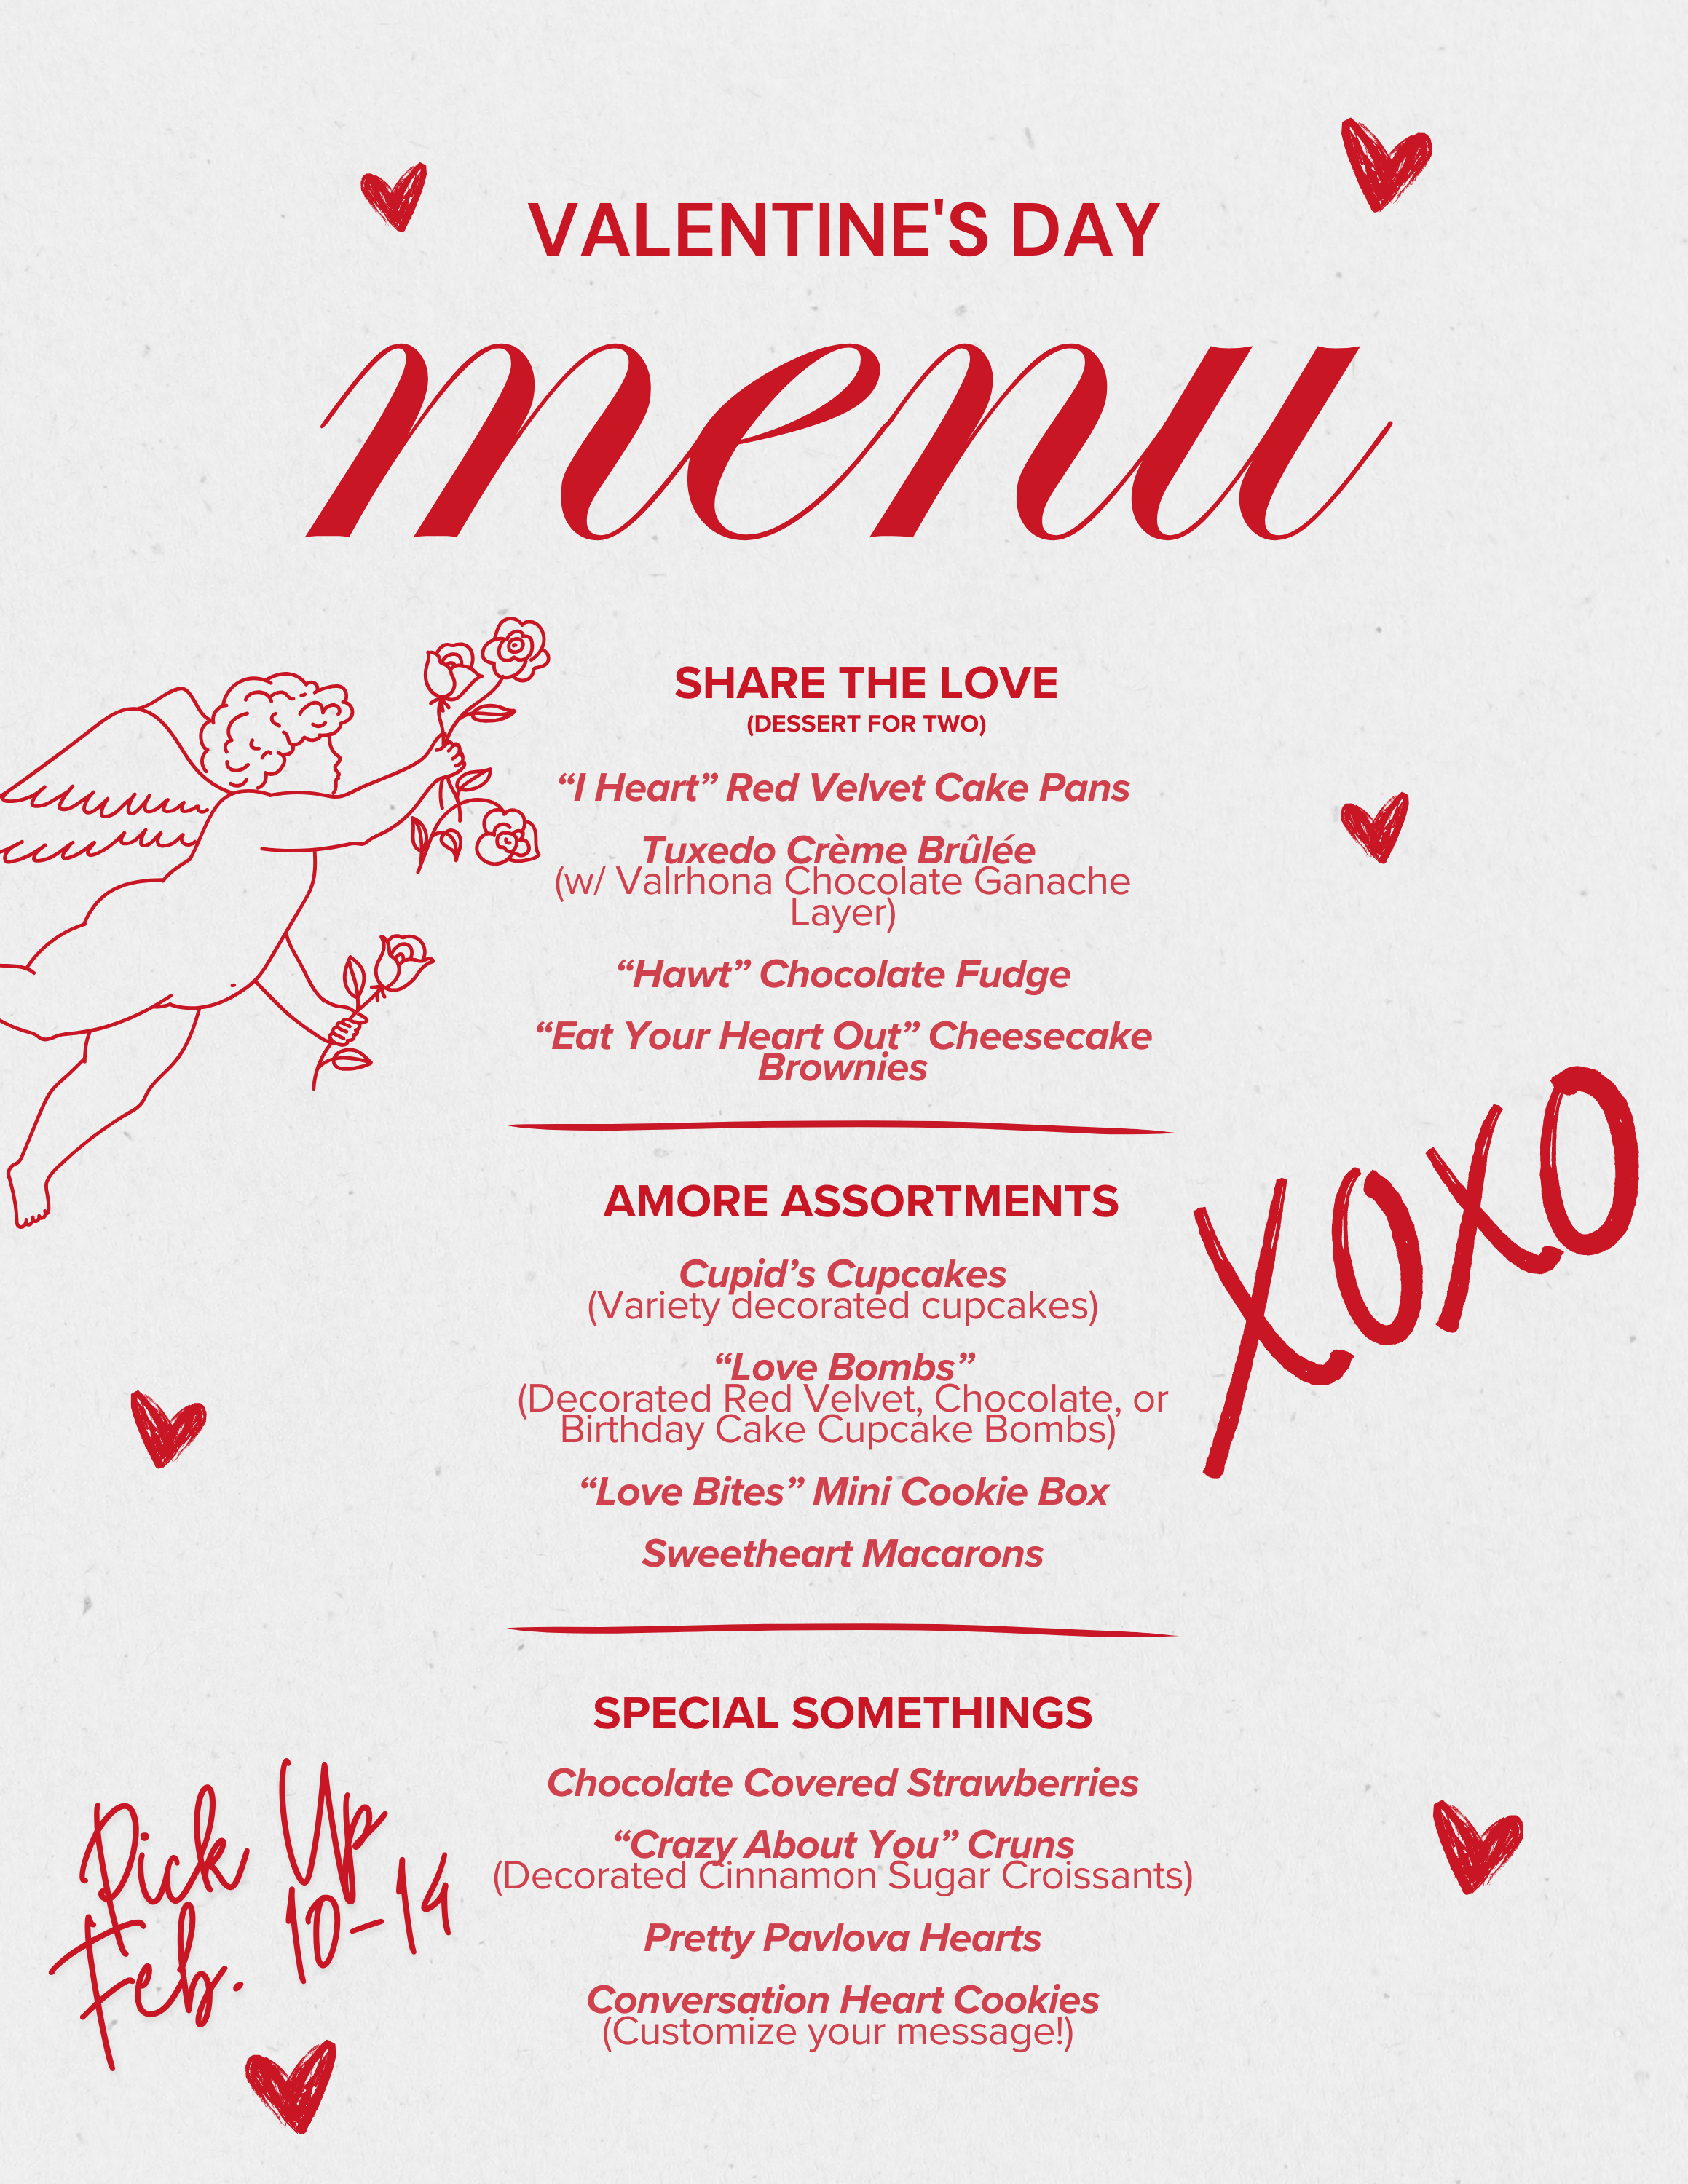 VALENTINE'S DAY
menu
SHARE THE LOVE
(DESSERT FOR TWO)
“I Heart” Red Velvet Cake Pans
Tuxedo Crème Brûlée
(w/ Valrhona Chocolate Ganache
Layer)
“Hawt” Chocolate Fudge
“Eat Your Heart Out” Cheesecake
Brownies
XOXO
AMORE ASSORTMENTS
Cupid’s Cupcakes
(Variety decorated cupcakes)
“Love Bombs”
(Decorated Red Velvet, Chocolate, or
Birthday Cake Cupcake Bombs)
“Love Bites” Mini Cookie Box
Sweetheart Macarons
SPECIAL SOMETHINGS
Chocolate Covered Strawberries
“Crazy About You” Cruns
(Decorated Cinnamon Sugar Croissants)
Pretty Pavlova Hearts
Conversation Heart Cookies
(Customize your message!)
Pick Up
Feb. 10-14